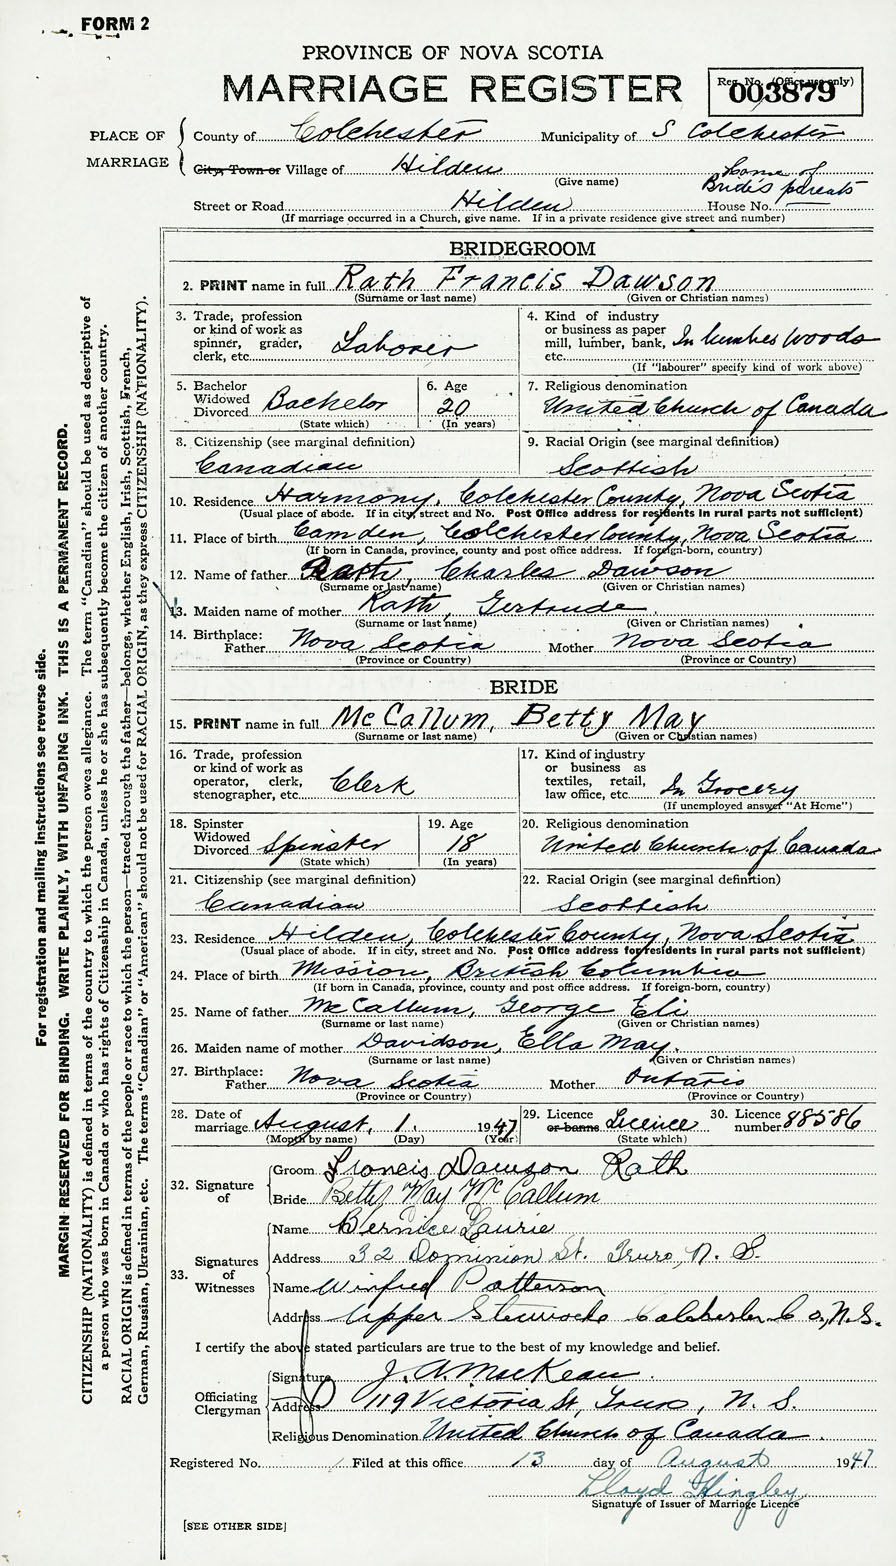 FORM 2
PROVINCE OF NOVA SCOTIA
MARRIAGE REGISTER
Reg. No. (Office use only)
003879
PLACE OF MARRIAGE
County of Colchester Municipality of S Colchester
City, Town or Village of Hilden
(Give name)
Home of Bride's parents
Street or Road Hilden House No. —
(If marriage occurred in a Church, give name. If in a private residence give street and number)
BRIDEGROOM
2. PRINT name in full Rath Francis Dawson
(Surname or last name) (Given or Christian names)
3. Trade, profession or kind of work as spinner, grader, clerk, etc. Laborer
4. Kind of industry or business as paper mill, lumber, bank, etc. In lumber woods
(If "labourer" specify kind of work above)
5. Bachelor Widowed Divorced Bachelor
(State which)
6. Age 20
(In years)
7. Religious denomination
United Church of Canada
8. Citizenship (see marginal definition)
Canadian
9. Racial Origin (see marginal definition)
Scottish
10. Residence Harmony, Colchester County, Nova Scotia
(Usual place of abode. If in city, street and No. Post Office address for residents in rural parts not sufficient)
11. Place of birth Camden, Colchester County, Nova Scotia
(If born in Canada, province, county and post office address. If foreign-born, country)
12. Name of father Rath, Charles Dawson
(Surname or last name) (Given or Christian names)
13. Maiden name of mother Rath, Gertrude
(Surname or last name) (Given or Christian names)
14. Birthplace:
Father Nova Scotia Mother Nova Scotia
(Province or Country) (Province or Country)
BRIDE
15. PRINT name in full McCallum, Betty May
(Surname or last name) (Given or Christian names)
16. Trade, profession or kind of work as operator, clerk, stenographer, etc. Clerk
17. Kind of industry or business as textiles, retail, law office, etc. In Grocery
(If unemployed answer "At Home")
18. Spinster Widowed Divorced Spinster
(State which)
19. Age 18
(In years)
20. Religious denomination
United Church of Canada
21. Citizenship (see marginal definition)
Canadian
22. Racial Origin (see marginal definition)
Scottish
23. Residence Hilden, Colchester County, Nova Scotia
(Usual place of abode. If in city, street and No. Post Office address for residents in rural parts not sufficient)
24. Place of birth Mission, British Columbia
(If born in Canada, province, county and post office address. If foreign-born, country)
25. Name of father McCallum, George Eli
(Surname or last name) (Given or Christian names)
26. Maiden name of mother Davidson, Ella May.
(Surname or last name) (Given or Christian names)
27. Birthplace:
Father Nova Scotia Mother Ontario
(Province or Country) (Province or Country)
28. Date of marriage August, 1, 1947
(Month by name) (Day) (Year)
29. Licence or banns Licence
(State which)
30. Licence number 88586
32. Signature of
Groom Francis Dawson Rath
Bride Betty May McCallum
33. Signatures of Witnesses
Name Bernice Laurie
Address 32 Dominion St. Truro, N. S.
Name Winifred Patterson
Address Upper Stewiacke Colchester Co., N.S.
I certify the above stated particulars are true to the best of my knowledge and belief.
Officiating Clergyman
Signature J. A. MacKean
Address 119 Victoria St, Truro, N. S.
Religious Denomination United Church of Canada.
Registered No. Filed at this office 13 day of August 1947
Lloyd Hingley
Signature of Issuer of Marriage Licence
[SEE OTHER SIDE]
For registration and mailing instructions see reverse side.
MARGIN RESERVED FOR BINDING. WRITE PLAINLY, WITH UNFADING INK. THIS IS A PERMANENT RECORD.
CITIZENSHIP (NATIONALITY) is defined in terms of the country to which the person owes allegiance. The term "Canadian" should be used as descriptive of
a person who was born in Canada or who has rights of Citizenship in Canada, unless he or she has subsequently become the citizen of another country.
RACIAL ORIGIN is defined in terms of the people or race to which the person—traced through the father—belongs, whether English, Irish, Scottish, French,
German, Russian, Ukrainian, etc. The terms "Canadian" or "American" should not be used for RACIAL ORIGIN, as they express CITIZENSHIP (NATIONALITY).